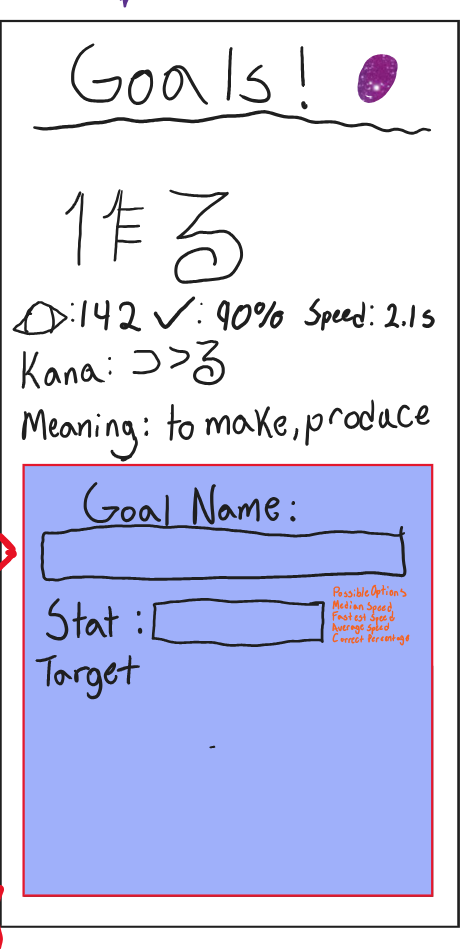 Goals!
作る
:142 ✓: 90% Speed: 2.1s
Kana: つくる
Meaning: to make, produce
Goal Name:
Stat:
Possible Options
Median Speed
Fastest Speed
Average Speed
Correct Percentage
Target